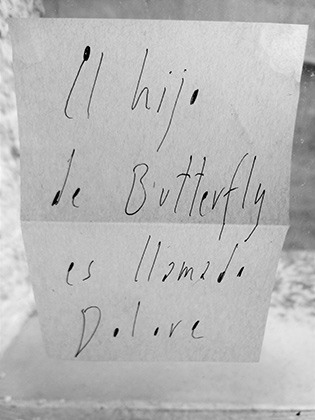 El hijo
de Butterfly
es llamado
Dolore